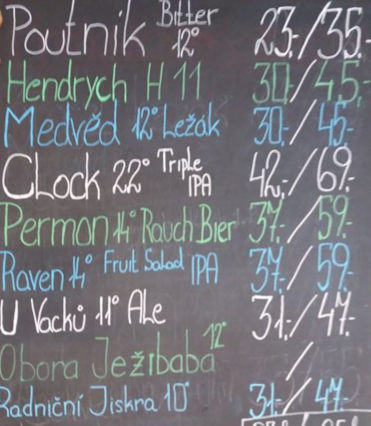 Poutnik Bitter 12° 23,-/35.-
Hendrych H 11 30/45,-
Medvěd 12° Ležák 30,-/45,-
CLock 22° Triple IPA 42,-/69.-
Permon 14° Rauch Bier 37,-/59.-
Raven 14° Fruit Salad IPA 37,-/59.-
U Vacků 11° Ale 31,-/47.-
Obora Ježibaba 12° /
Radniční Jiskra 10° 31,-/47.-